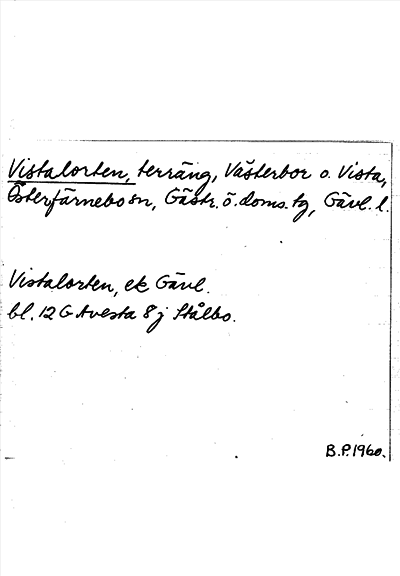 Vistalorten, terräng, Västerbor o. Vista,
Österfärnebo sn, Gästr. ö. doms. tg, Gävl. l.
Vistalorten, ek Gävl.
bl. 12 G Avesta 8 j Stålbo.
B.P. 1960.